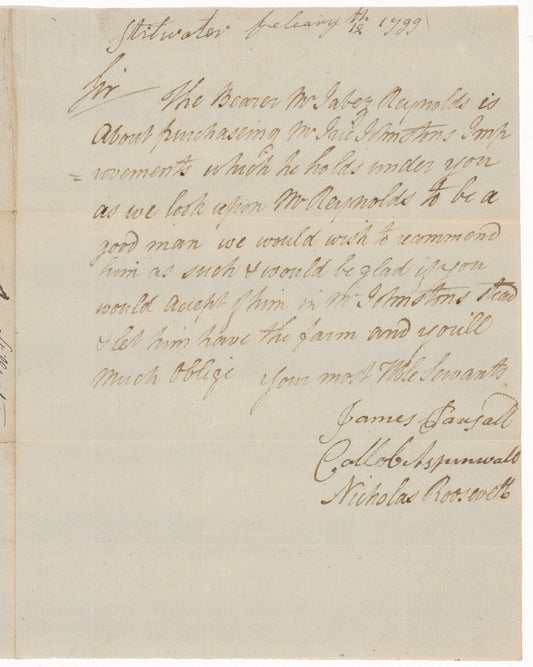 Stilwater february 12th 1799
Sir The Bearer Mr Jabez Reynolds is
About purchaseing Mr Johnstons Imp
=rovements which he holds under you
as we look upon Mr Reynolds to be a
good man we would wish to recommend
him as such & would be glad if you
would accept of him in Mr Johnstons stead
& let him have the farm and you'll
Much Oblige your most Hble Servants
James
Callob Aspinwald
Nicholas Roosevelt